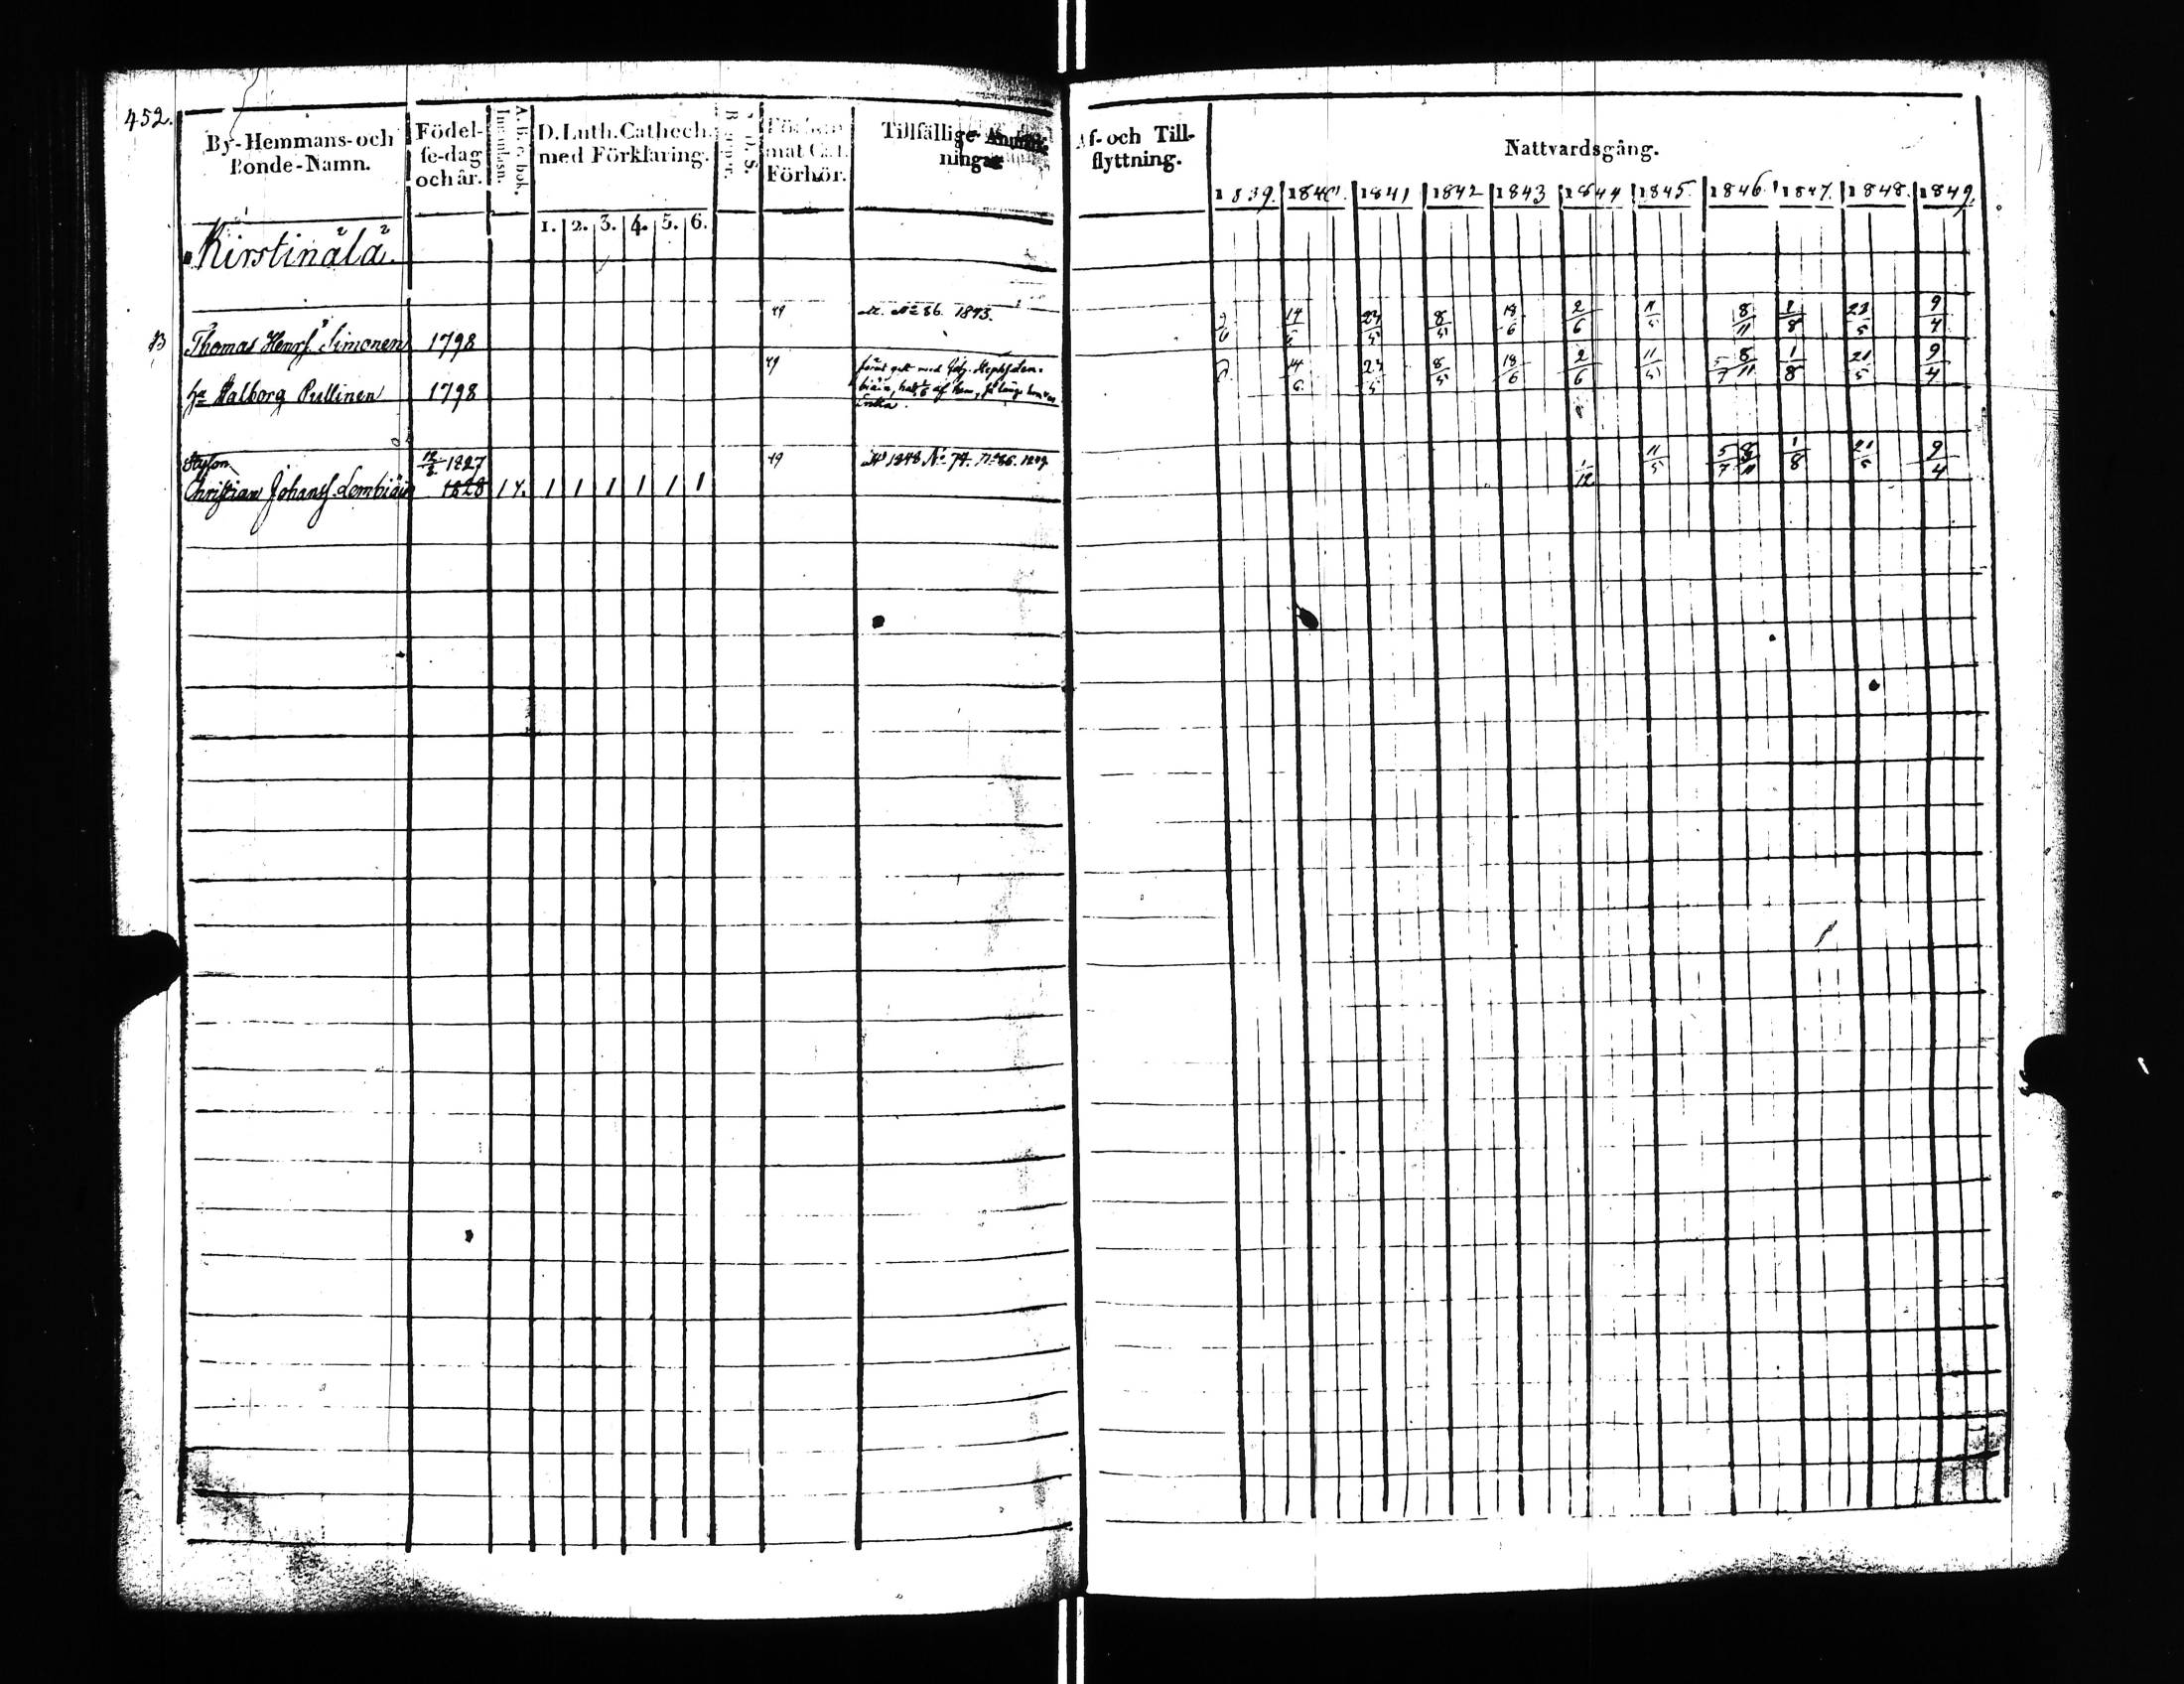 452.
By-Hemmans-och Bonde-Namn.
Födelse-dag och år.
A. B. C. bok.
Innanläsn.
D. Luth. Cathech. med Förklaring.
1. 2. 3. 4. 5. 6.
Förhör.
Tillfällige
ningar
Af- och Tillflyttning.
Nattvardsgång.
1839. 1840. 1841 1842 1843 1844 1845. 1846. 1847. 1848. 1849.
Kirstinälä.
B Thomas Henrs. Simonen 1798 49 No 86. 1843. 14/6 23/5 8/5 18/6 2/6 11/5 8/11 1/8 9/4
hu Walborg Pullinen 1798 49 14/6 23/5 8/5 18/6 2/6 11/5 5/7 8/11 1/8 21/5 9/4
Styfson 1827 49 1848 No 74.
Christian Johanss. Lembiäin 1828 1 1 1 1 1 1 1 1/12 11/5 5/7 8/11 1/8 21/5 9/4